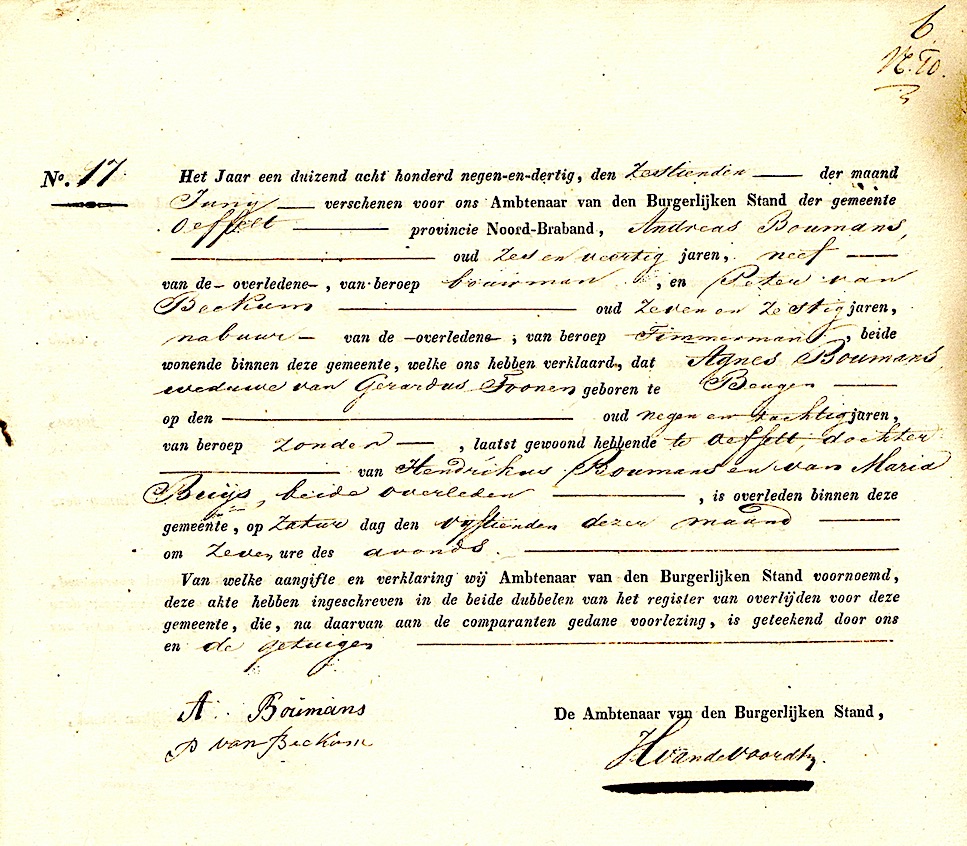 6
No. 17 Het Jaar een duizend acht honderd negen-en-dertig, den Zestienden der maand
Juny verschenen voor ons Ambtenaar van den Burgerlijken Stand der gemeente
Oeffelt provincie Noord-Braband, Andreas Boumans,
oud zes en veertig jaren, neef
van de overledene, van beroep bouwman, en Peter van
Beekum oud Zeven en Zestig jaren,
nabuur van de overledene, van beroep Timmerman, beide
wonende binnen deze gemeente, welke ons hebben verklaard, dat Agnes Boumans,
weduwe van Gerardus Toonen geboren te Beugen
op den oud negen en tachtig jaren,
van beroep zonder, laatst gewoond hebbende te Oeffelt, dochter
van Hendrikus Boumans en van Maria
Buijs, beide overleden, is overleden binnen deze
gemeente, op Zatur dag den vyftienden dezer maand
om Zeven ure des avonds.
Van welke aangifte en verklaring wij Ambtenaar van den Burgerlijken Stand voornoemd,
deze akte hebben ingeschreven in de beide dubbelen van het register van overlijden voor deze
gemeente, die, na daarvan aan de comparanten gedane voorlezing, is geteekend door ons
en de getuigen
A. Boumans
P van Beekum
De Ambtenaar van den Burgerlijken Stand,
HvandeVoordt